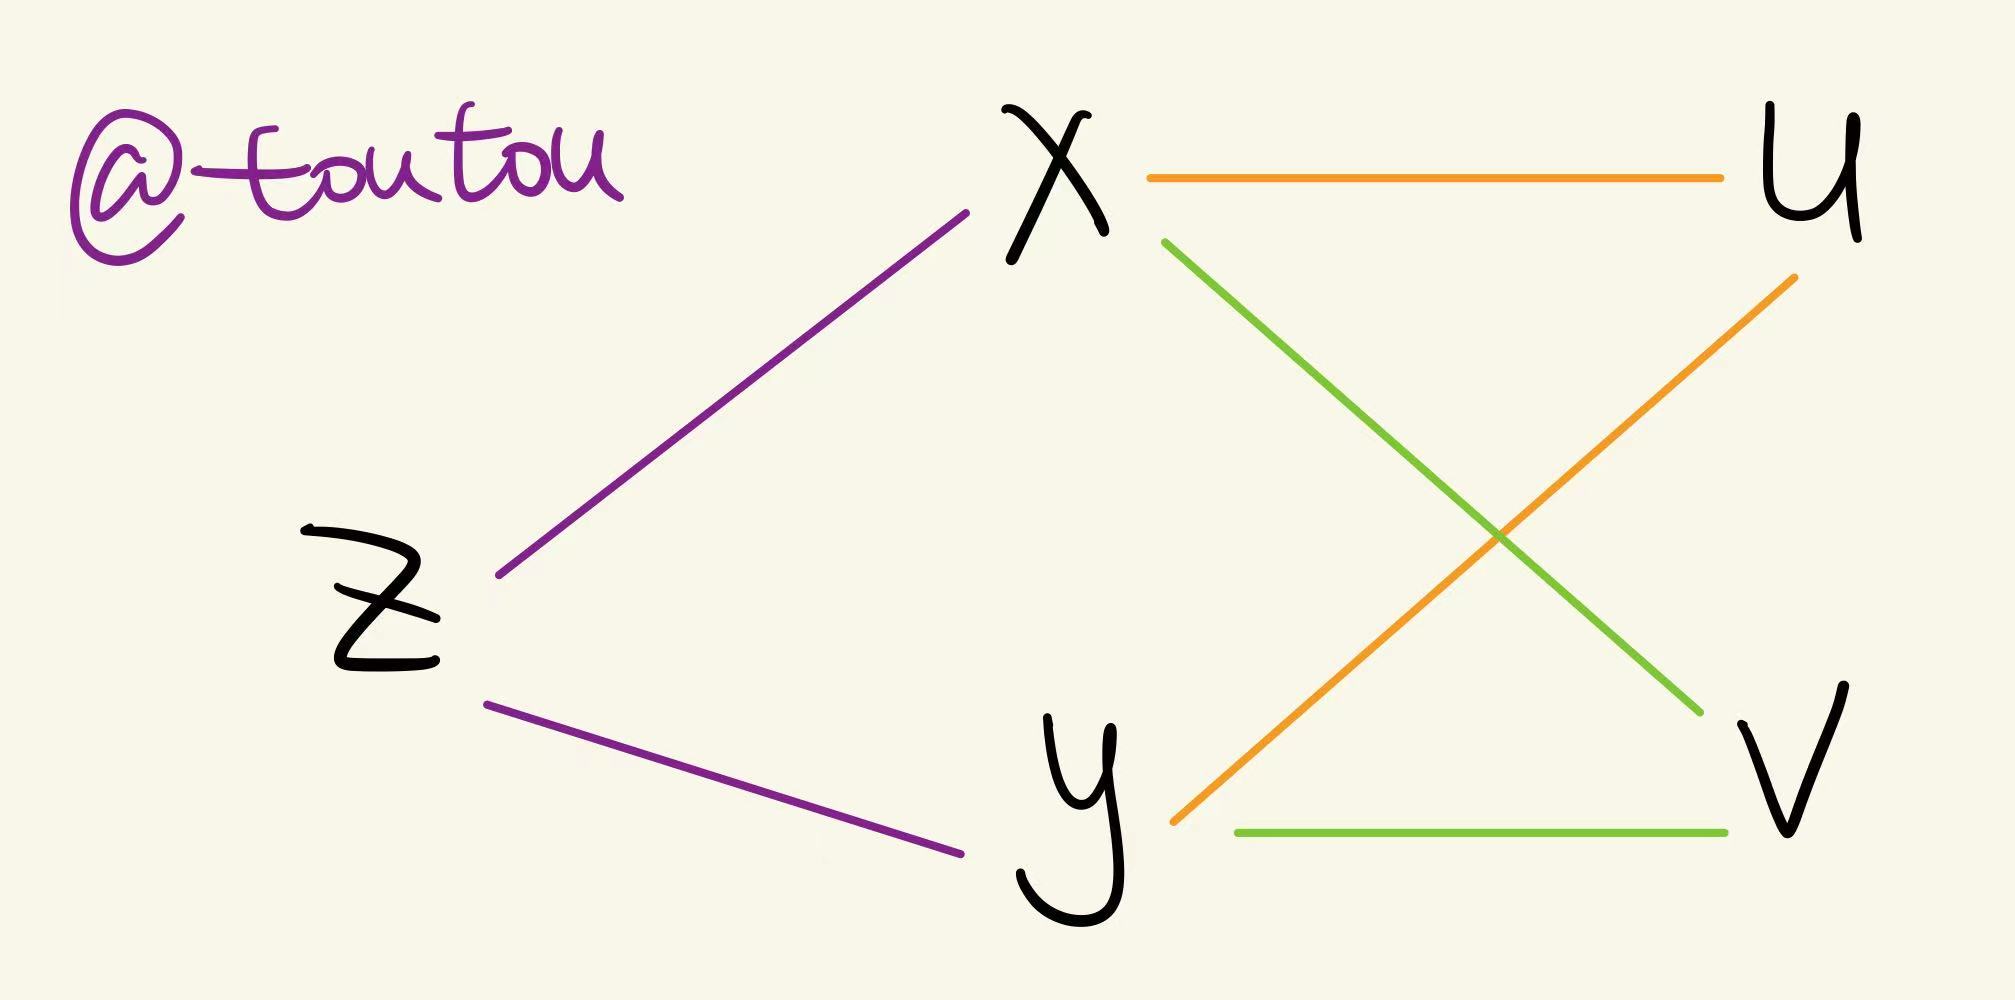 @toutou
x u
z
y v